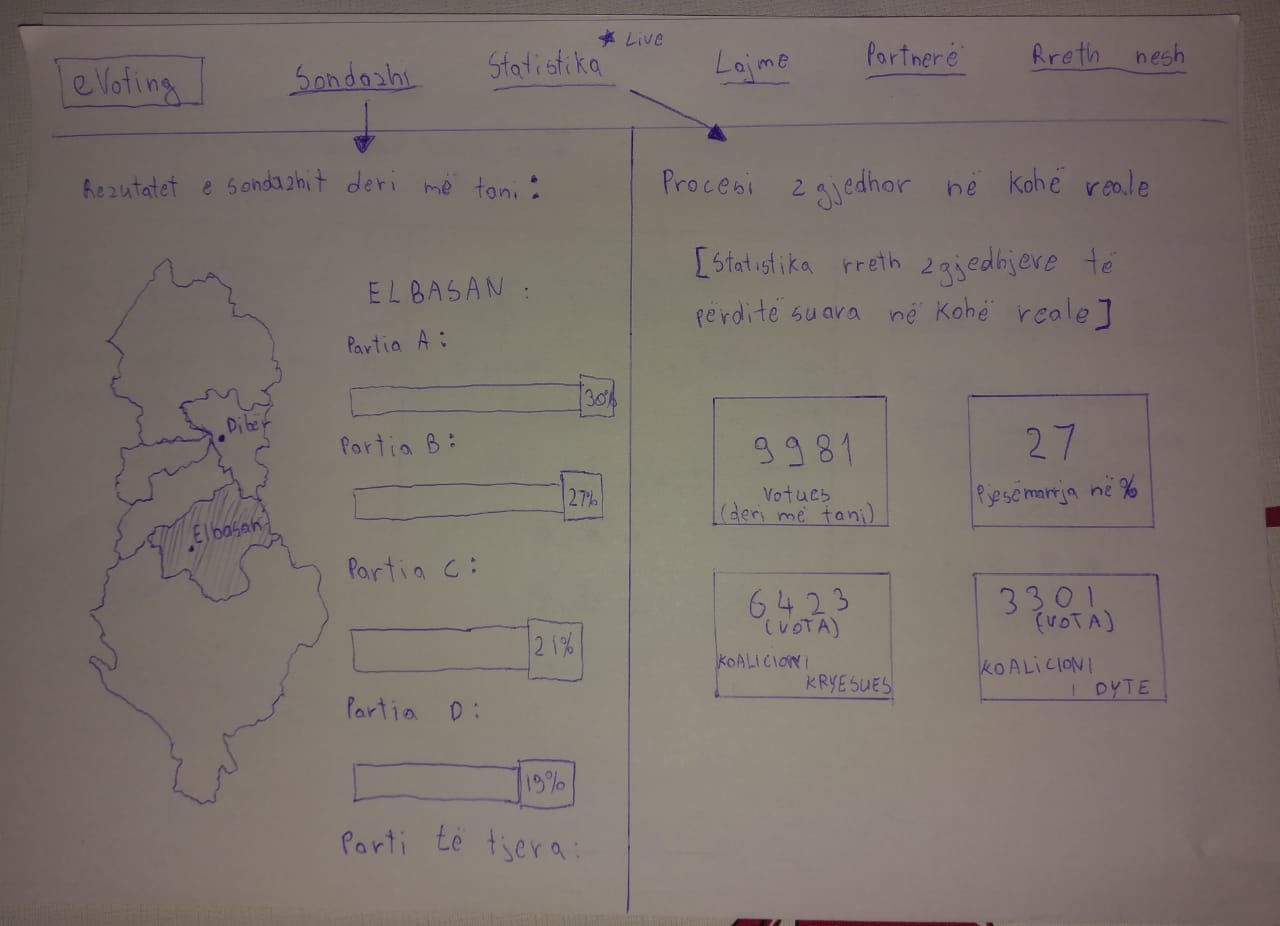 eVoting Sondazhi Statistika * Live Lajme Partnerë Rreth nesh
Rezutatet e sondazhit deri më tani:
ELBASAN:
Partia A:
30%
Partia B:
27%
Partia C:
21%
Partia D:
19%
Parti të tjera:
Dibër
Elbasan
Procesi zgjedhor në kohë reale
[Statistika rreth zgjedhjeve të
përditësuara në kohë reale]
9981
Votues
(deri më tani)
27
Pjesëmarrja në %
6423
(VOTA)
KOALICIONI
KRYESUES
3301
(VOTA)
KOALICIONI
I DYTE